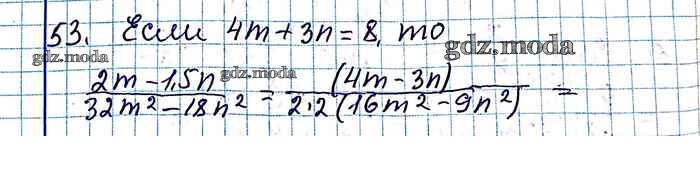 53. Если 4m + 3n = 8, то
gdz.moda
gdz.moda
gdz.moda
(2m - 1,5n)/(32m² - 18n²) = (4m - 3n)/(2·2(16m² - 9n²)) =